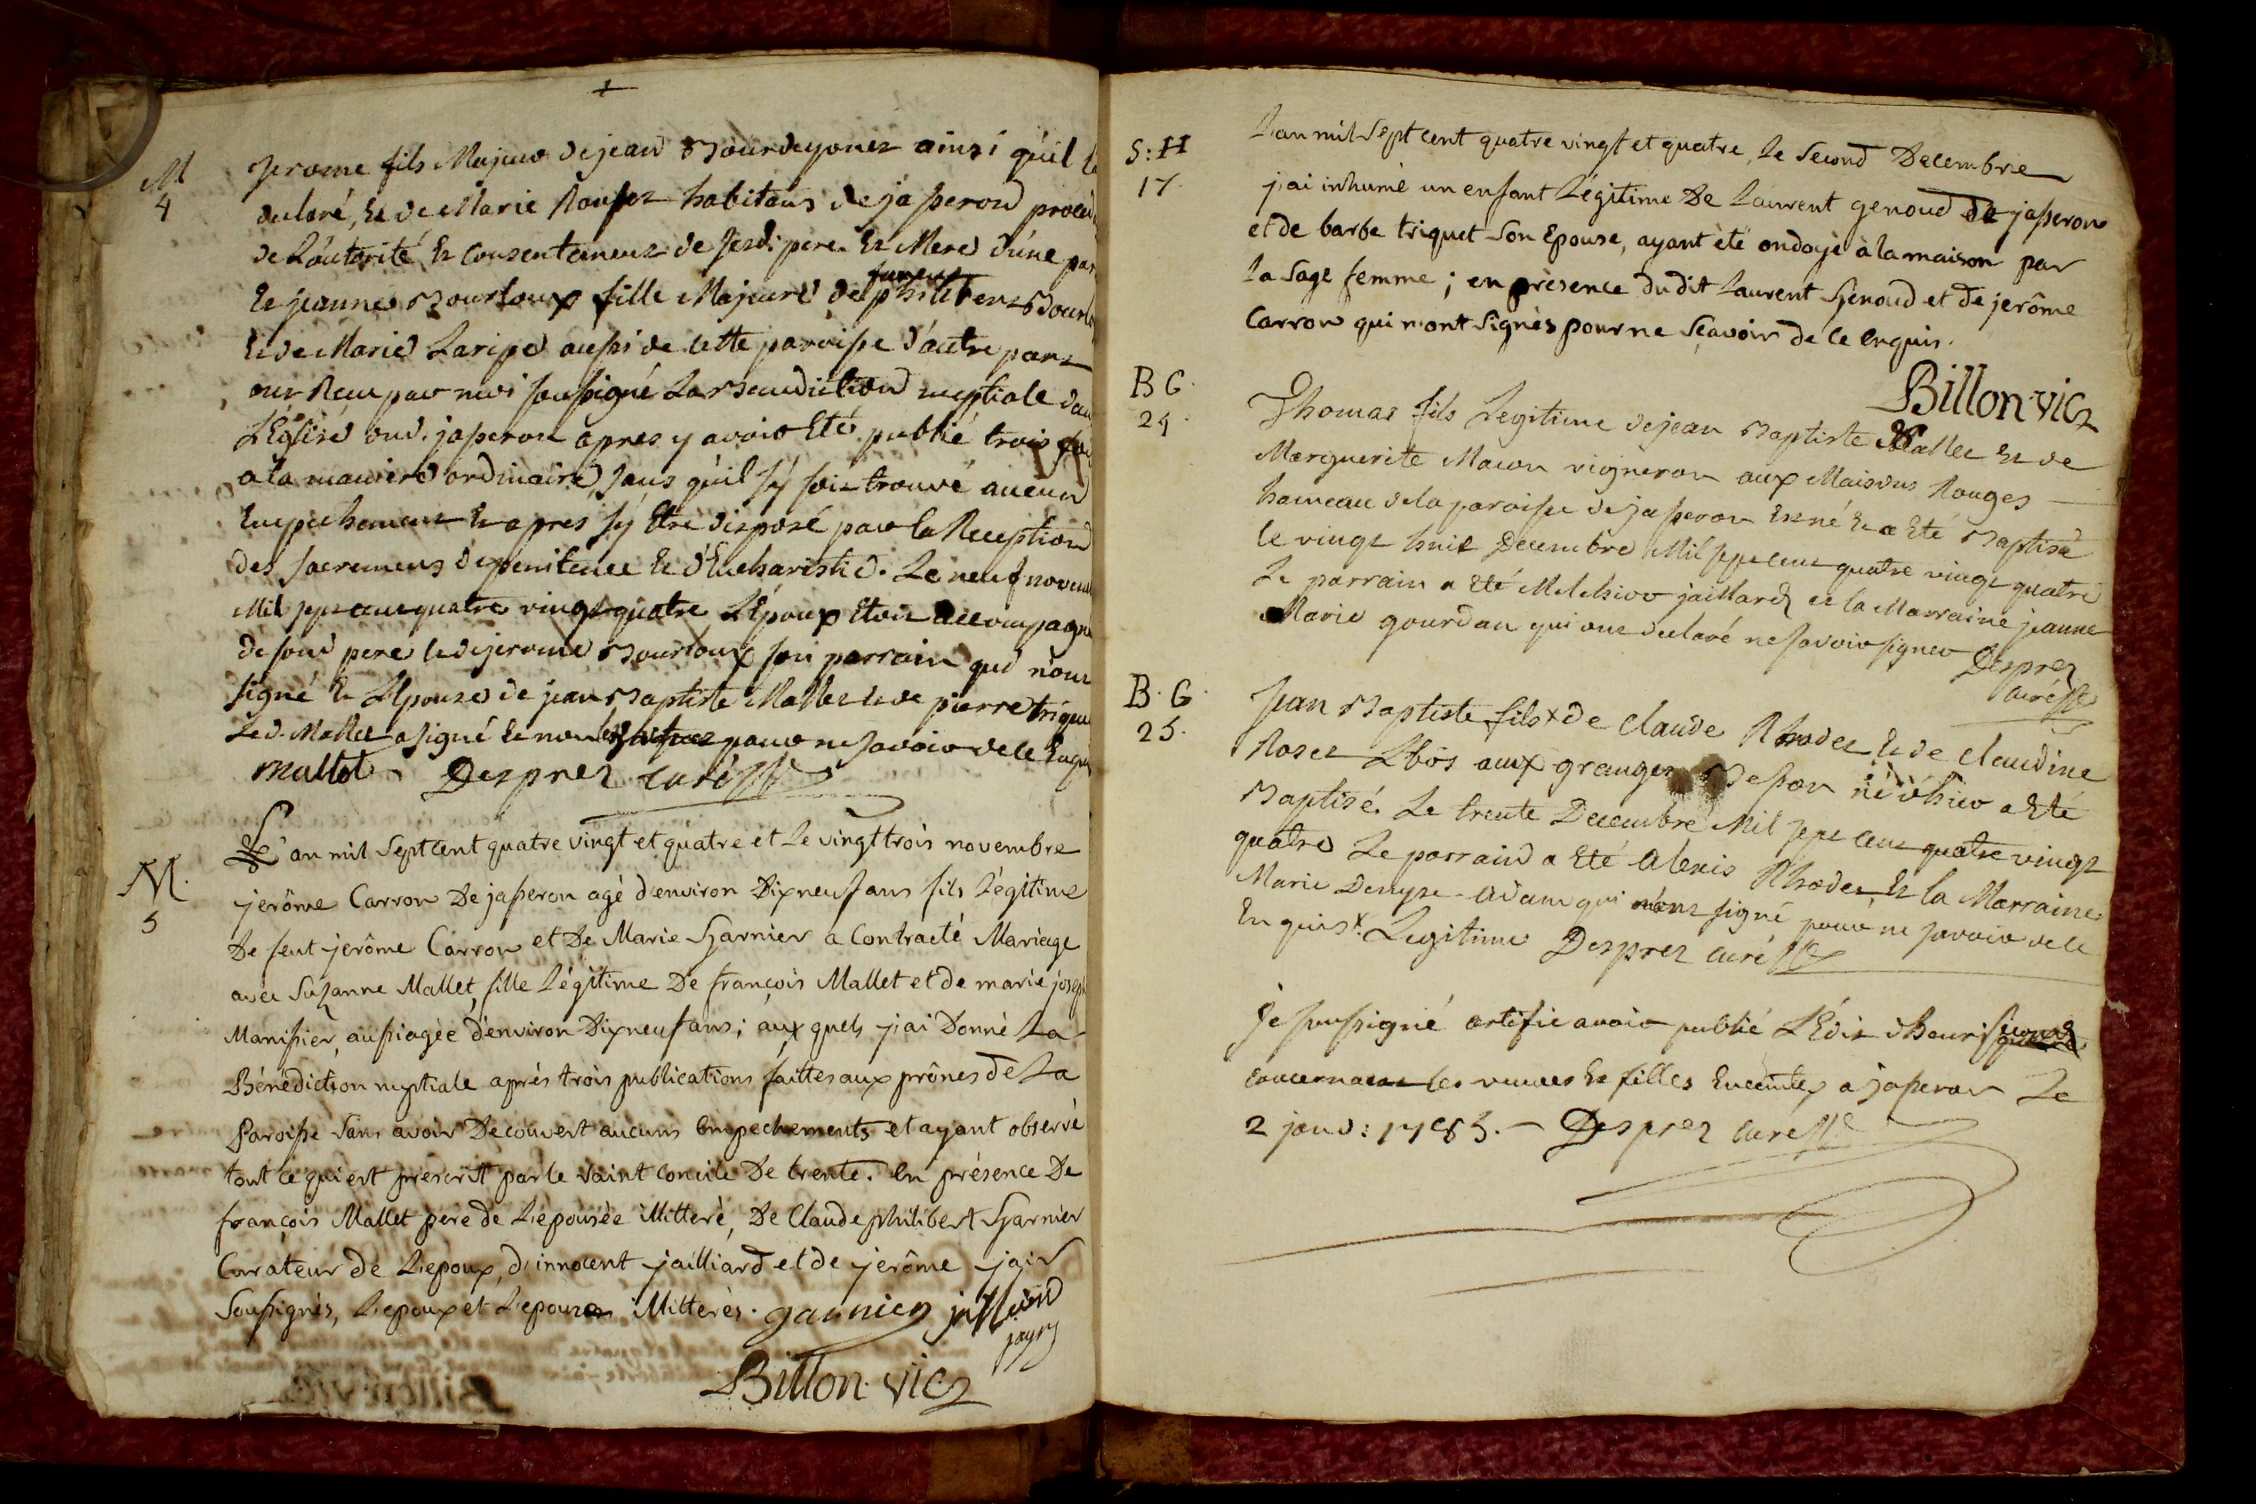 M
4
Jerome fils Majeur de jean Bourdeyonet ainsi qu'il l'a
declaré, et de Marie habitans de jasseron
de L'autorité et consentement de sesd. pere et Mere d'une part
Et jeanne Bourloux fille Majeure de philibert
Et de Marie Laripe aussi de cette paroisse d'autre part
ont Recu par moi soussigné La Benediction nuptiale dans
L'Eglise dud. jasseron apres y avoir Eté publié trois fois
a la maniere ordinaire, sans qu'il s'y soit trouvé aucun
Empechement Et apres s'y Etre disposé par la Reception
des sacremens de penitence Et d'Eucharistie. Le neuf
Mil sept cent quatre vingt quatre L'Epoux Etoit accompagné
de son pere et de jerome Bourloux son parrain qui n'ont
signé Et L'Epouse de jean Baptiste Mallet et de pierre triquet
Led. Mallet a signé Et non pour ne savoir de ce Enquis
mallet Desprez curé
M.
5
L'an mil sept cent quatre vingt et quatre et Le vingt trois novembre
jerôme Carron De jasseron agé d'environ Dixneuf ans fils Légitime
De feut jerôme Carron et De Marie Garnier a Contracté Mariage
avec Suzanne Mallet, fille Légitime De françois Mallet et de marie joseph
Manissier, aussi agée d'environ Dixneuf ans; aux quels j'ai Donné La
Bénédiction nuptiale aprés trois publications faittes aux prônes de La
Paroisse sans avoir Decouvert aucuns empechements et ayant observé
tout ce qui est prescrit par le saint concile De trente. En présence De
françois Mallet pere de L'epousée illitteré, De Claude philibert Garnier
Curateur de L'epoux, d'innocent jailliard et de jerôme jair
Soussignés, L'epoux et L'epouse illitterés. garnier
Billon. vic.
S: H
17.
L'an mil sept cent quatre vingt et quatre, le second Decembre
j'ai inhumé un enfant Légitime De Laurent genoud de jasseron
et de barbe triquet son Epouse, ayant èté ondoyé à la maison par
la sage femme; en prèsence dudit Laurent Genoud et de jerôme
Carron qui n'ont signés pour ne sçavoir de ce enquis.
Billon vic.
B G.
24.
Thomas fils Legitime de jean Baptiste Mallet Et de
Marguerite Macon vigneron aux Maisons Rouges
hameau de la paroisse de jasseron Est né Et a Eté Baptisé
le vingt huit Decembre Mil sept cent quatre vingt quatre
Le parrain a Eté Melchior jaillard et la Marraine jeanne
Marie gourdan qui ont declaré ne savoir signer Desprez
curé
B. G.
25.
Jean Baptiste fils x de Claude Rhodet Et de Claudine
Roset L bos aux granges né d'hier a Eté
Baptisé. Le trente Decembre Mil sept cent quatre vingt
quatre Le parrain a Eté Alexis Rhodet Et la Marraine
Marie Denyse Adam qui n'ont signé pour ne savoir de ce
Enquis x. Legitime Desprez curé
Je soussigné certifie avoir publié L'Edit d'henri second
concernant les veuves Et filles Enceintes a jasseron Le
2 janv: 1785. Desprez curé